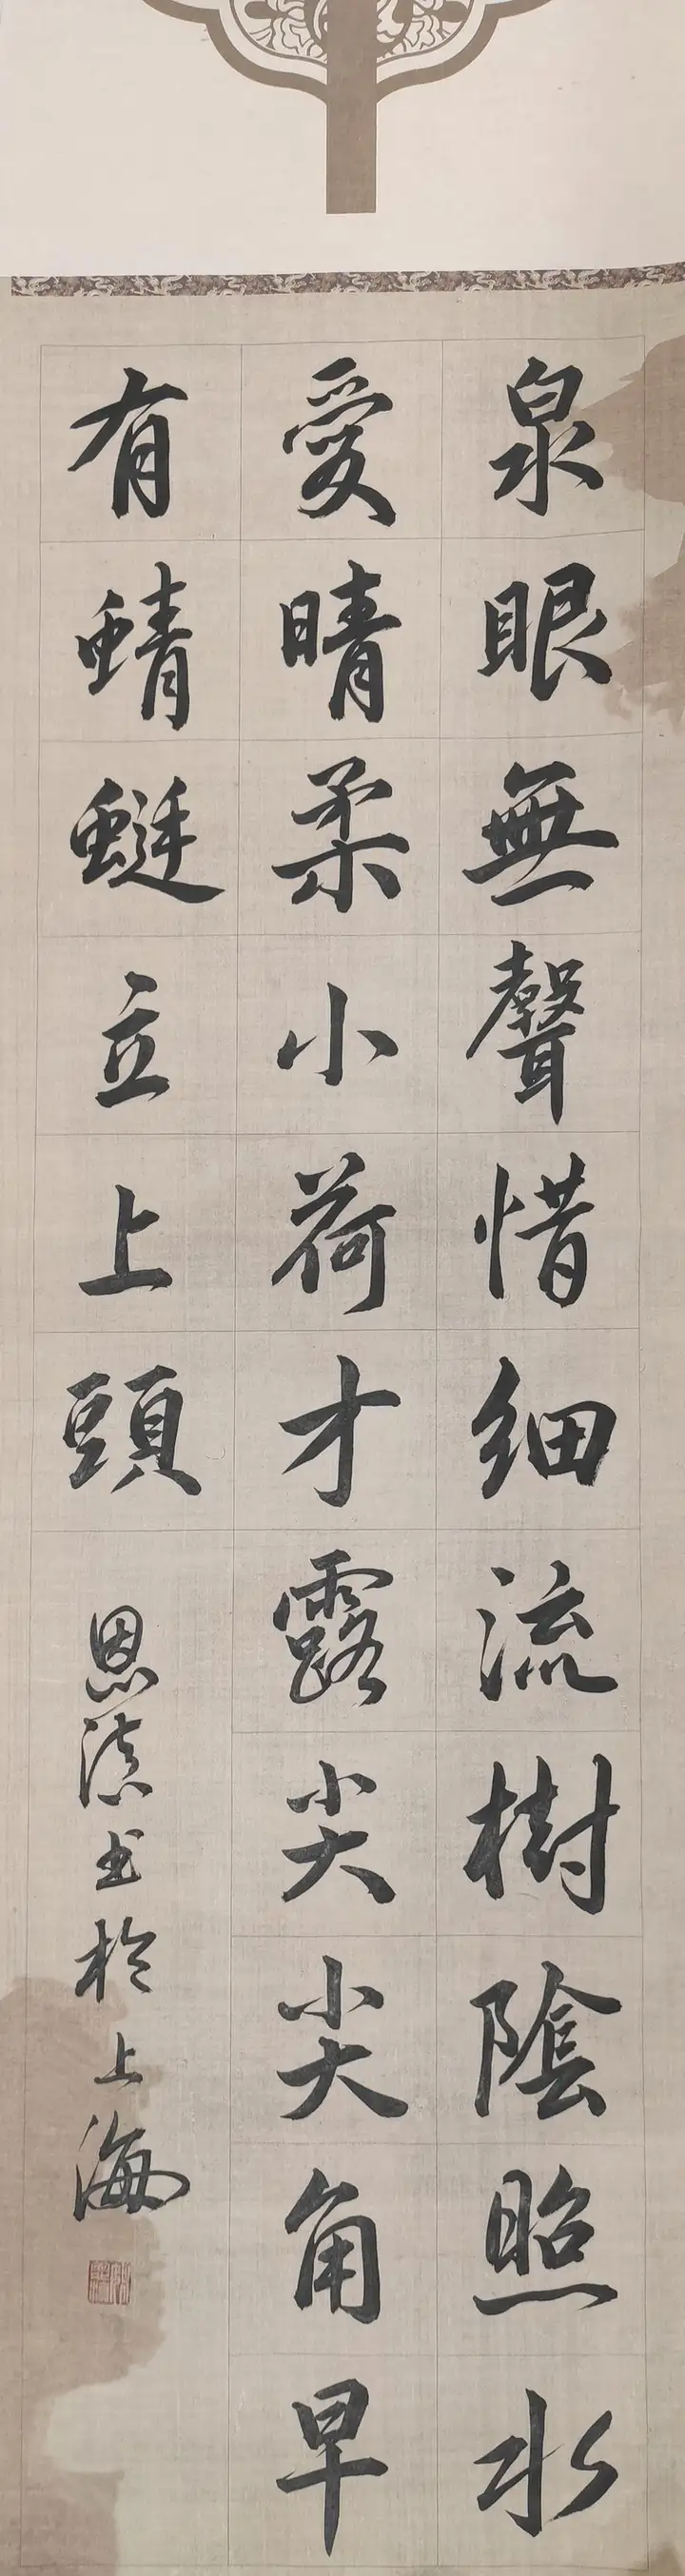 泉眼無聲惜细流樹陰照水
愛晴柔小荷才露尖尖角早
有蜻蜓立上頭
恩滇书於上海